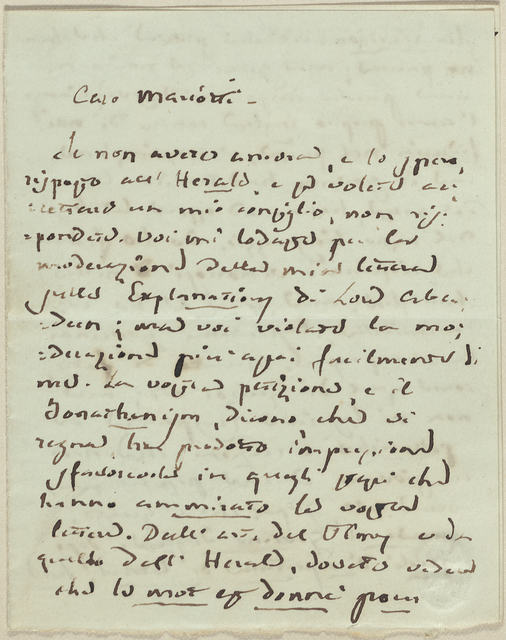 Caro Mariotti –
Se non avete ancora, e lo spero,
risposto all' Herald, e se volete ac:
:cettare un mio consiglio, non ris:
:pondete. Voi mi lodaste per la
moderazione della mia lettera
sulle Explanations di Lord Aber:
:deen; ma voi violate la mo:
:derazione più assai facilmente di
me. La vostra petizione, e il
Jonathanism, dicono che vi
regna ha prodotto impressione
sfavorevole in quegli stessi che
hanno ammirato la vostra
lettera. Dall' art. del Times e da
quello dell' Herald, dovete vedere
che le mot est donné pour